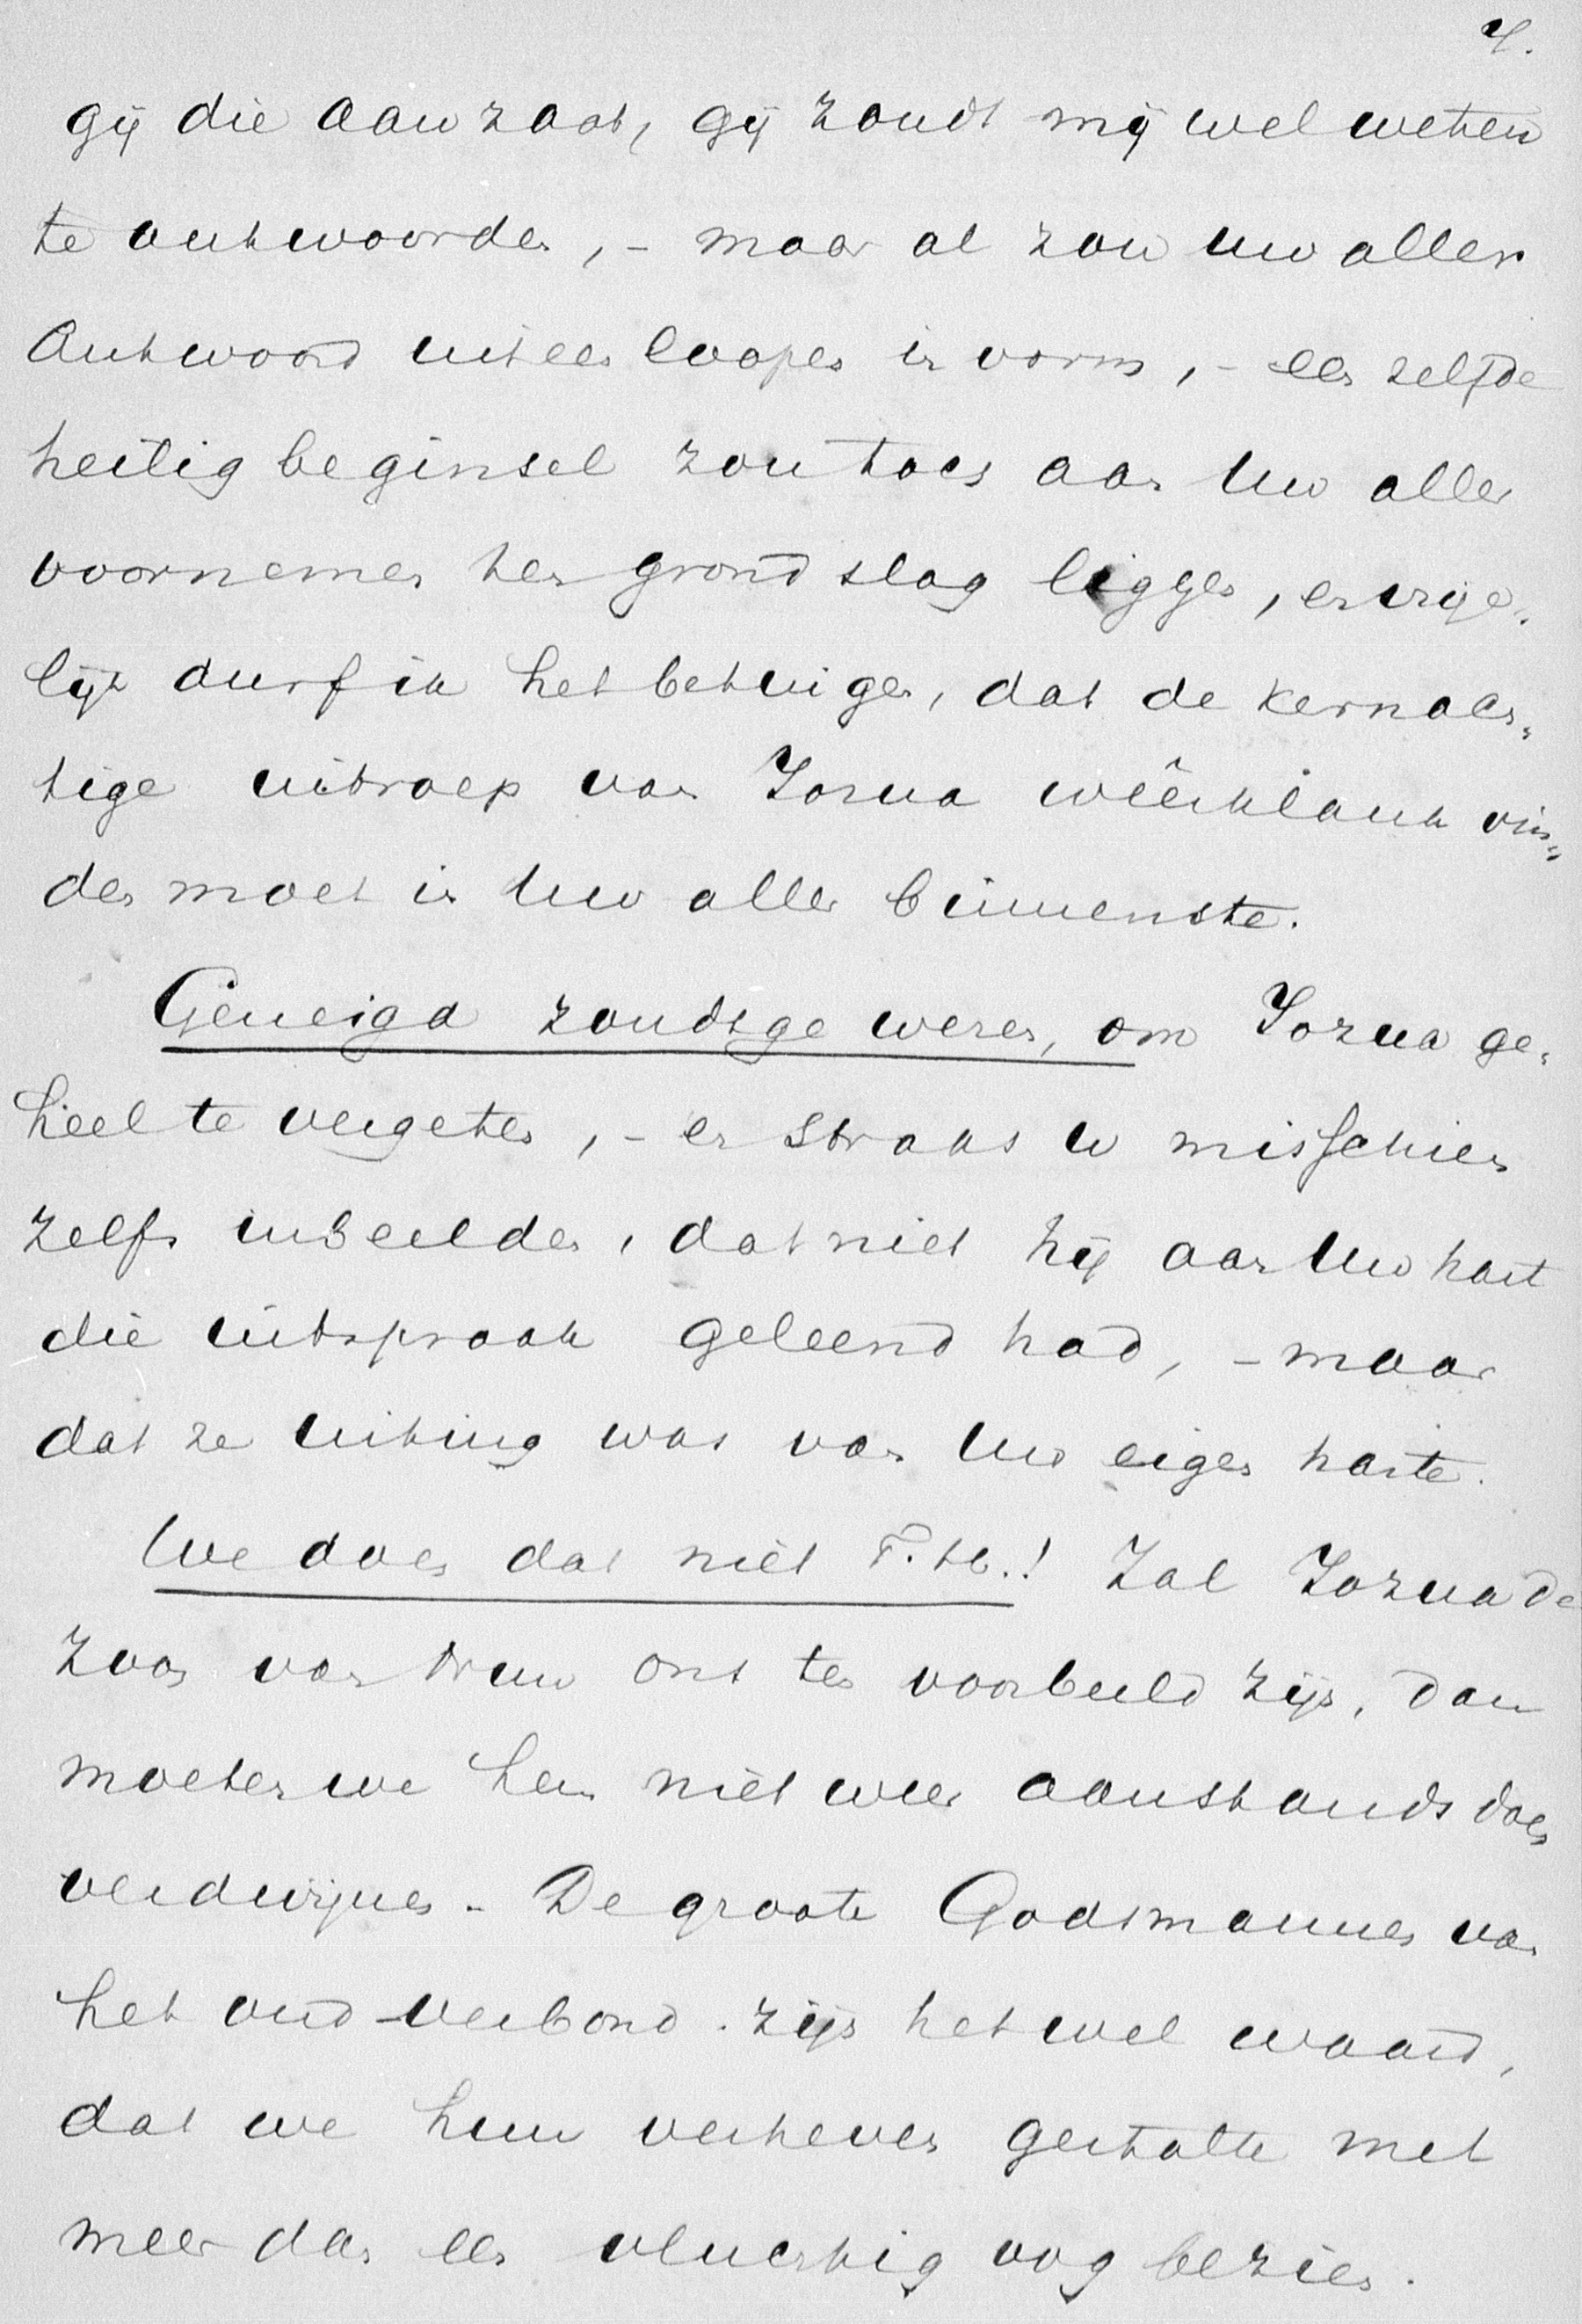 4.
gij die aanzaat, gij zoudt mij wel weten
te antwoorden, – maar al zou uw aller
Antwoord uiteenloopen in vorm, – een zelfde
heilig beginsel zou toch aan Uw aller
voornemen ten grondslag liggen, en vrije-
lijk durf ik het betuigen, dat de kernach-
tige uitroep van Jozua wêerklank vin-
den moet in Uw aller binnenste.
Geneigd zoudt ge wezen, om Jozua ge-
heel te vergeten, – en straks u misschien
zelfs inbeelden, dat niet hij aan Uw hart
die uitspraak geleend had, – maar
dat ze uiting was van Uw eigen harte.
We doen dat niet T. H.! Zal Jozua de
Zoon van Nun ons ten voorbeeld zijn, dan
moeten we hem niet weer aanstonds doen
verdwijnen. De groote Godsmannen van
het oud-verbond zijn het wel waard,
dat we hun verheven gestalte met
meer dan een vluchtig oog bezien.